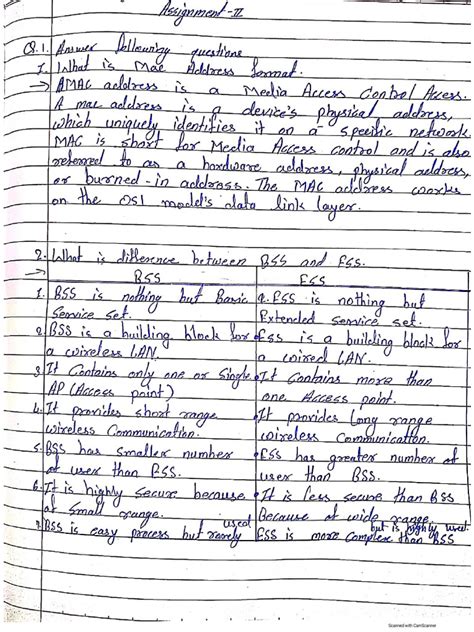 Assignment-II
Q.1. Answer following questions
1. What is Mac Address format.
→ A MAC address is a Media Access Control Axess.
A mac address is a device's physical address,
which uniquely identifies it on a specific network
MAC is short for Media Access control and is also
referred to as a hardware address, physical address,
or burned-in address. The MAC address works
on the OSI model's data link layer.
2. What is difference between BSS and ESS.
→ BSS ESS
1. BSS is nothing but Basic Service set.
ESS is nothing but Extended service set.
2. BSS is a building block for a wireless LAN.
ESS is a building block for a wired LAN.
3. It Contains only one or Single AP (Access point)
It Contains more than one Access point.
4. It provides short range wireless Communication.
It provides Long range wireless Communication.
5. BSS has smaller number of user than ESS.
ESS has greater number of user than BSS.
6. It is highly secure because of small range.
It is less secure than BSS Because of wide range
7. BSS is easy process but rarely used
ESS is more complex than BSS but is highly used
Scanned with CamScanner